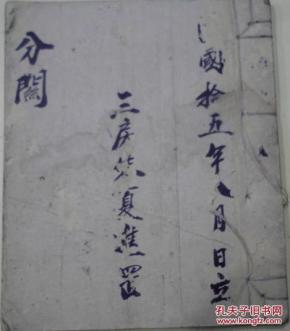 國拾五年八月日立
三房
夏進置
分關
孔夫子旧书网